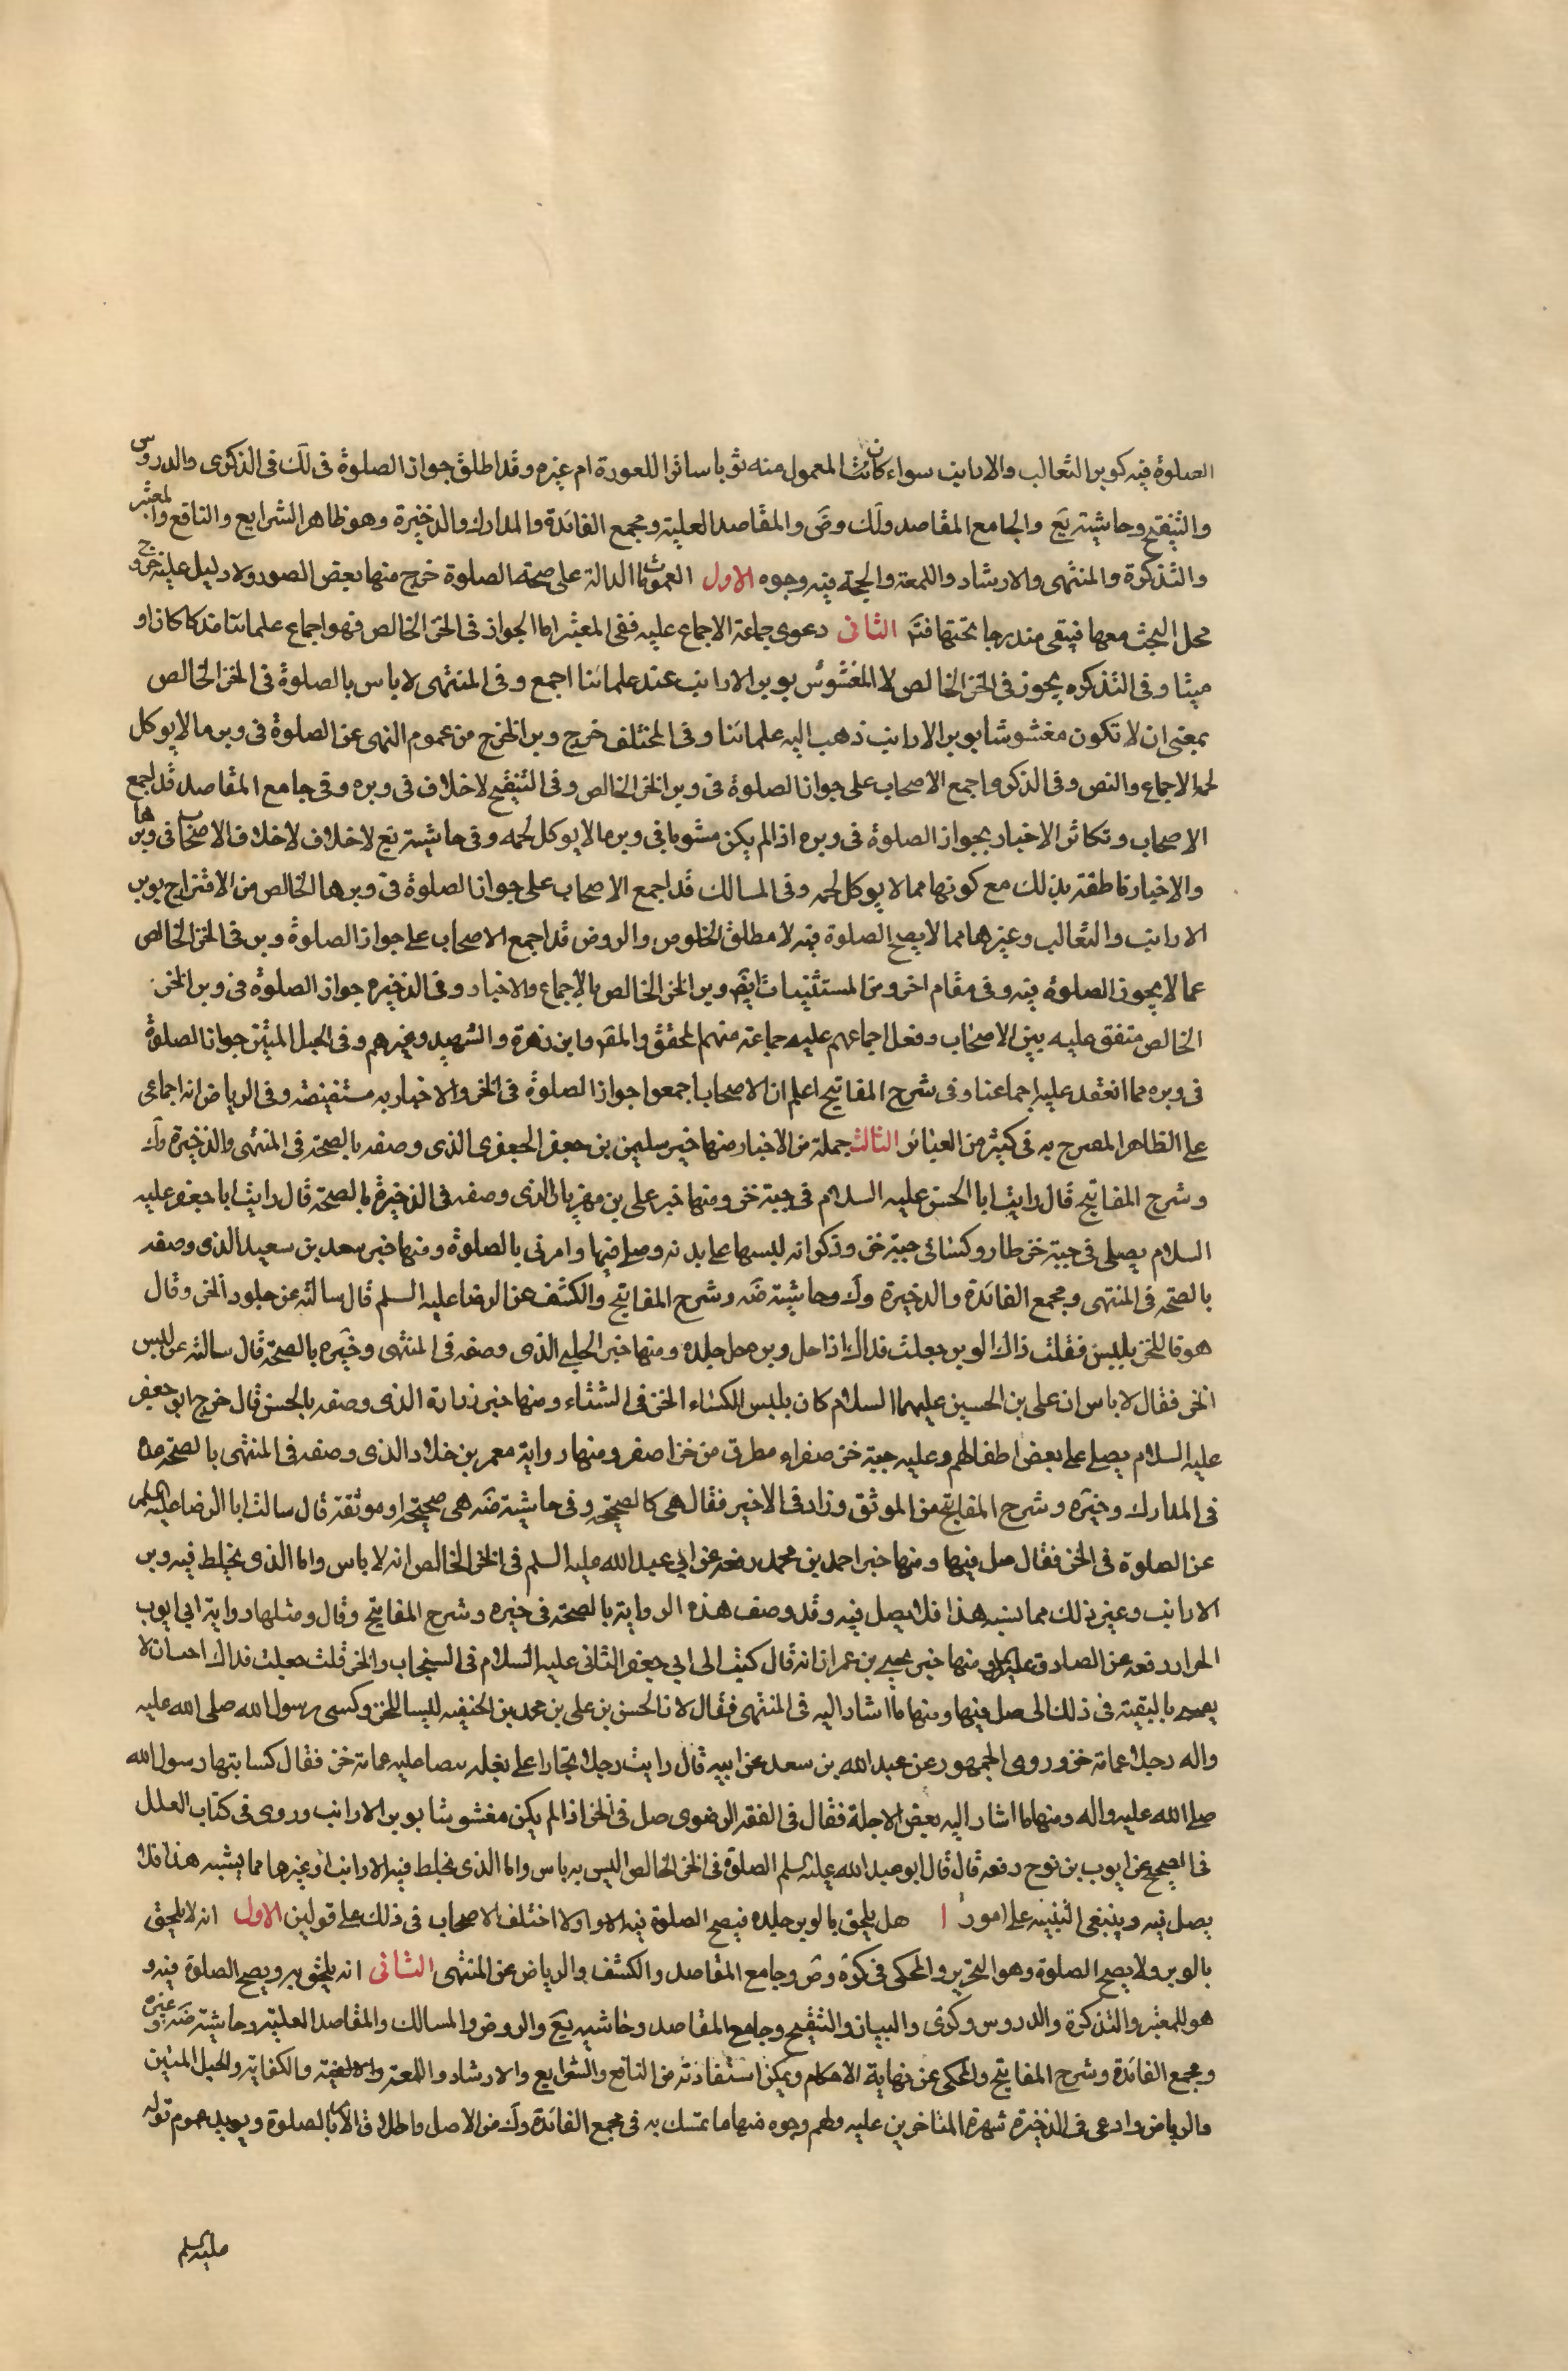 الصلوة فيه كوبر الثعالب والارانب سواء كان المعمول منه ثوبا ساترا للعورة ام غيره وقد اطلق جواز الصلوة في لك في الذكرى والدروس
والتنقيح وحاشيته يع والجامع المقاصد ولك وض والمقاصد العلية ومجمع الفائدة والمدارك والذخيرة وهو ظاهر الشرايع والنافع والمعتبر
والتذكرة والمنتهى والارشاد واللمعة والحجة فيه وجوه الاول العمومات الدالة على صحة الصلوة خرج منها بعض الصور ولا دليل على خروج
محل البحث معها فيبقى مندرجا تحتها فتم الثاني دعوى جماعة الاجماع عليه ففي المعتبر اما الجواز في الخز الخالص فهو اجماع علمائنا مذكا كان او
ميتا وفي التذكره يجوز في الخز الخالص لا المغشوش بوبر الارانب عند علمائنا اجمع وفي المنتهى لا باس بالصلوة في الخز الخالص
بمعنى ان لا تكون مغشوشا بوبر الارانب ذهب اليه علمائنا وفي المختلف خرج وبر الخز ج من عموم النهى عن الصلوة في وبر ما لا يوكل
لحمه الاجماع والنص وفي الذكرى اجمع الاصحاب على جواز الصلوة في وبر الخز الخالص وفي التنقيح لا خلاف في وبره وفي جامع المقاصد قد اجمع
الاصحاب وتكاثر الاخبار بجواز الصلوة في وبره اذا لم يكن مشوبا في وبر ما لا يوكل لحمه وفي حاشيته يع لا خلاف لا خلاف الاصحاب في وبرها
والاخبار ناطقة بذلك مع كونها مما لا يوكل لحمه وفي المسالك قد اجمع الاصحاب على جواز الصلوة في وبرها الخالص من الامتزاج بوبر
الارانب والثعالب وغيرهما مما لا يصح الصلوة فيه لا مطلق الخلوص والروض قد اجمع الاصحاب على جواز الصلوة وبر في الخز الخالص
عما لا يجوز الصلوة فيه وفي مقام اخر ومن المستثنيات ايض وبر الخز الخالص بالاجماع والاخبار وفي الذخيره جواز الصلوة في وبر الخز
الخالص متفق عليه بين الاصحاب ونقل اجماعهم عليه جماعة منهم المحقق والمقر وابن زهرة والشهيد وغيرهم وفي الحبل المتين جواز الصلوة
في وبره مما انعقد عليه اجماعنا وفي شرح المفاتيح اعلم ان الاصحاب اجمعوا جواز الصلوة في الخز والاخبار به مستفيضة وفي الرياض انه اجماعي
على الظاهر المصرح به في كثير من العبائر الثالث جملة من الاخبار منها خبر سليمن بن جعفر الجعفرى الذى وصفه بالصحة في المنتهى والذخيرة ولك
وشرح المفاتيح قال رايت ابا الحسن عليه السلام في جبة خز ومنها خبر على بن مهزيار الذى وصفه في الذخيرة بالصحة قال رايت ابا جعفر عليه
السلام يصلى في جبة خز طارو وكسائى جبة خز وذكر انه لبسها على بدنه وصلى فيها وامرنى بالصلوة ومنها خبر سعد بن سعيد الذى وصفه
بالصحة في المنتهى ومجمع الفائدة والذخيرة ولك وحاشيته ضه وشرح المفاتيح والكشف عن الرضا عليه السلم قال سالته عن جلود الخز وقال
هو ذا الخز يلبس فقلت ذاك الوبر جعلت فداك اذا حل وبره حل جلده ومنها خبر الحلبي الذى وصفه في المنتهى وخيره بالصحة قال سالته عن لبس
الخز فقال لا باس ان على بن الحسين عليهما السلام كان يلبس الكساء الخز في الشتاء ومنها خبر زرارة الذى وصفه بالحسن قال خرج ابو جعفر
عليه السلام يصلى على بعض اطفالهم وعليه جبة خز صفراء مطرف من خز اصفر ومنها رواية معمر بن خلاد الذى وصفه في المنتهى بالصحة وعده
في المدارك وخيره وشرح المفاتيح من الموثق وزاد في الاخير فقال هي كالصحيح وفي حاشيته ضه هي صحيحة او موثقة قال سالت ابا الرضا عليه السلم
عن الصلوة في الخز فقال صل فيها ومنها خبر احمد بن محمد رفعه عن ابي عبد الله عليه السلم في الخز الخالص انه لا باس واما الذى يخلط فيه وبر
الارانب وغير ذلك مما يشبه هذا فلا يصل فيه وقد وصف هذه الرواية بالصحة في خيره وشرح المفاتيح وقال ومثلها رواية ابي ايوب
الحراز رفعه عن الصادق عليه السلم ومنها خبر يحيى بن عمران انه قال كتبت الى ابي جعفر الثانى عليه السلام في السنجاب والخز قلت جعلت فداك احب ان لا
بالبقية في ذلك الى صل فيها ومنها ما اشار اليه في المنتهى فقال لان الحسن بن على بن محمد بن الحنفيه لبسا الخز وكسى رسول الله صلى الله عليه
واله رجلا عمامة خز وروى الجمهور عن عبد الله بن سعد عن ابيه قال رايت رجلا تجارا على بغله عليه عمامة خز فقال كسانيها رسول الله
صلى الله عليه واله ومنها ما اشار اليه بعض الاجلة فقال في الفقه الرضوى صل في الخز اذا لم يكن مغشوشا بوبر الارانب وروى في كتاب العلل
في الصحيح عن ايوب بن نوح رفعه قال قال ابو عبد الله عليه السلم الصلوة في الخز الخالص ليس به باس واما الذى يخلط فيه الارانب او غيرها مما يشبه هذا فلا
يصل فيه وينبغى التنبيه على امور ا هل يلحق بالوبر جلده فيصح الصلوة فيه الا او لا اختلف الاصحاب في ذلك على قولين الاول انه لا يلحق
بالوبر ولا يصح الصلوة وهو التحرير والمحكى في كرة وض وجامع المقاصد والكشف والرياض عن المنتهى الثانى انه يلحق به ويصح الصلوة فيه و
هو للمعتبر والتذكرة والدروس وكرى والبيان والتنقيح وجامع المقاصد وحاشيه يع والروض والمسالك والمقاصد العلية وحاشيته ضه وغيره
ومجمع الفائدة وشرح المفاتيح والمحكى عن نهاية الاحكام ويمكن استفادته من النافع والشرايع والارشاد واللمعة والالفية والكفاية والحبل المتين
والرياض وادعى في الذخيرة شهرة المتاخرين عليه ولهم وجوه منها ما تمسك به في مجمع الفائدة ولك من الاصل واطلاق الامر بالصلوة ويويد عموم قوله
عليه السلم